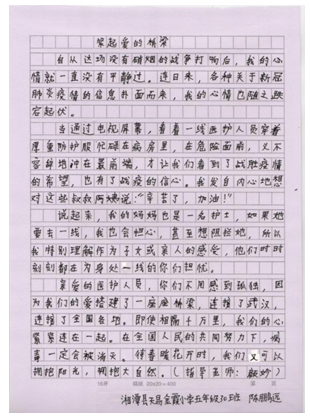 架起爱的桥梁
自从这场没有硝烟的战争打响后，我的心
情就一直没有平静过。连日来，各种关于新冠
肺炎疫情的信息扑面而来，我的心情也随之跌
宕起伏。
当通过电视屏幕，看着一线医护人员穿着
厚重防护服忙碌在病房里，在危险面前，义不
容辞地冲在最前端，才让我们看到了战胜疫情
的希望，也有了战疫的信心。我发自内心地想
对这些叔叔阿姨说：“辛苦了，加油！”
说起来，我的妈妈也是一名护士，如果她
要去一线，我也会担心，甚至想阻拦她，所以
我特别理解作为子女或亲人的感受，他们时时
刻刻都在为身处一线的你们担忧。
亲爱的医护人员，你们不用感到孤独，因
为我们的爱搭建了一座座桥梁，连接了武汉，
连接了全国各地。即使相隔千万里，我们的心
紧紧连在一起。在全国人民的共同努力下，病
毒一定会被消灭。待春暖花开时，我们又可以
拥抱阳光，拥抱大自然。（指导老师：
湘潭县天易金霞小学五年级10班 陈鹏远